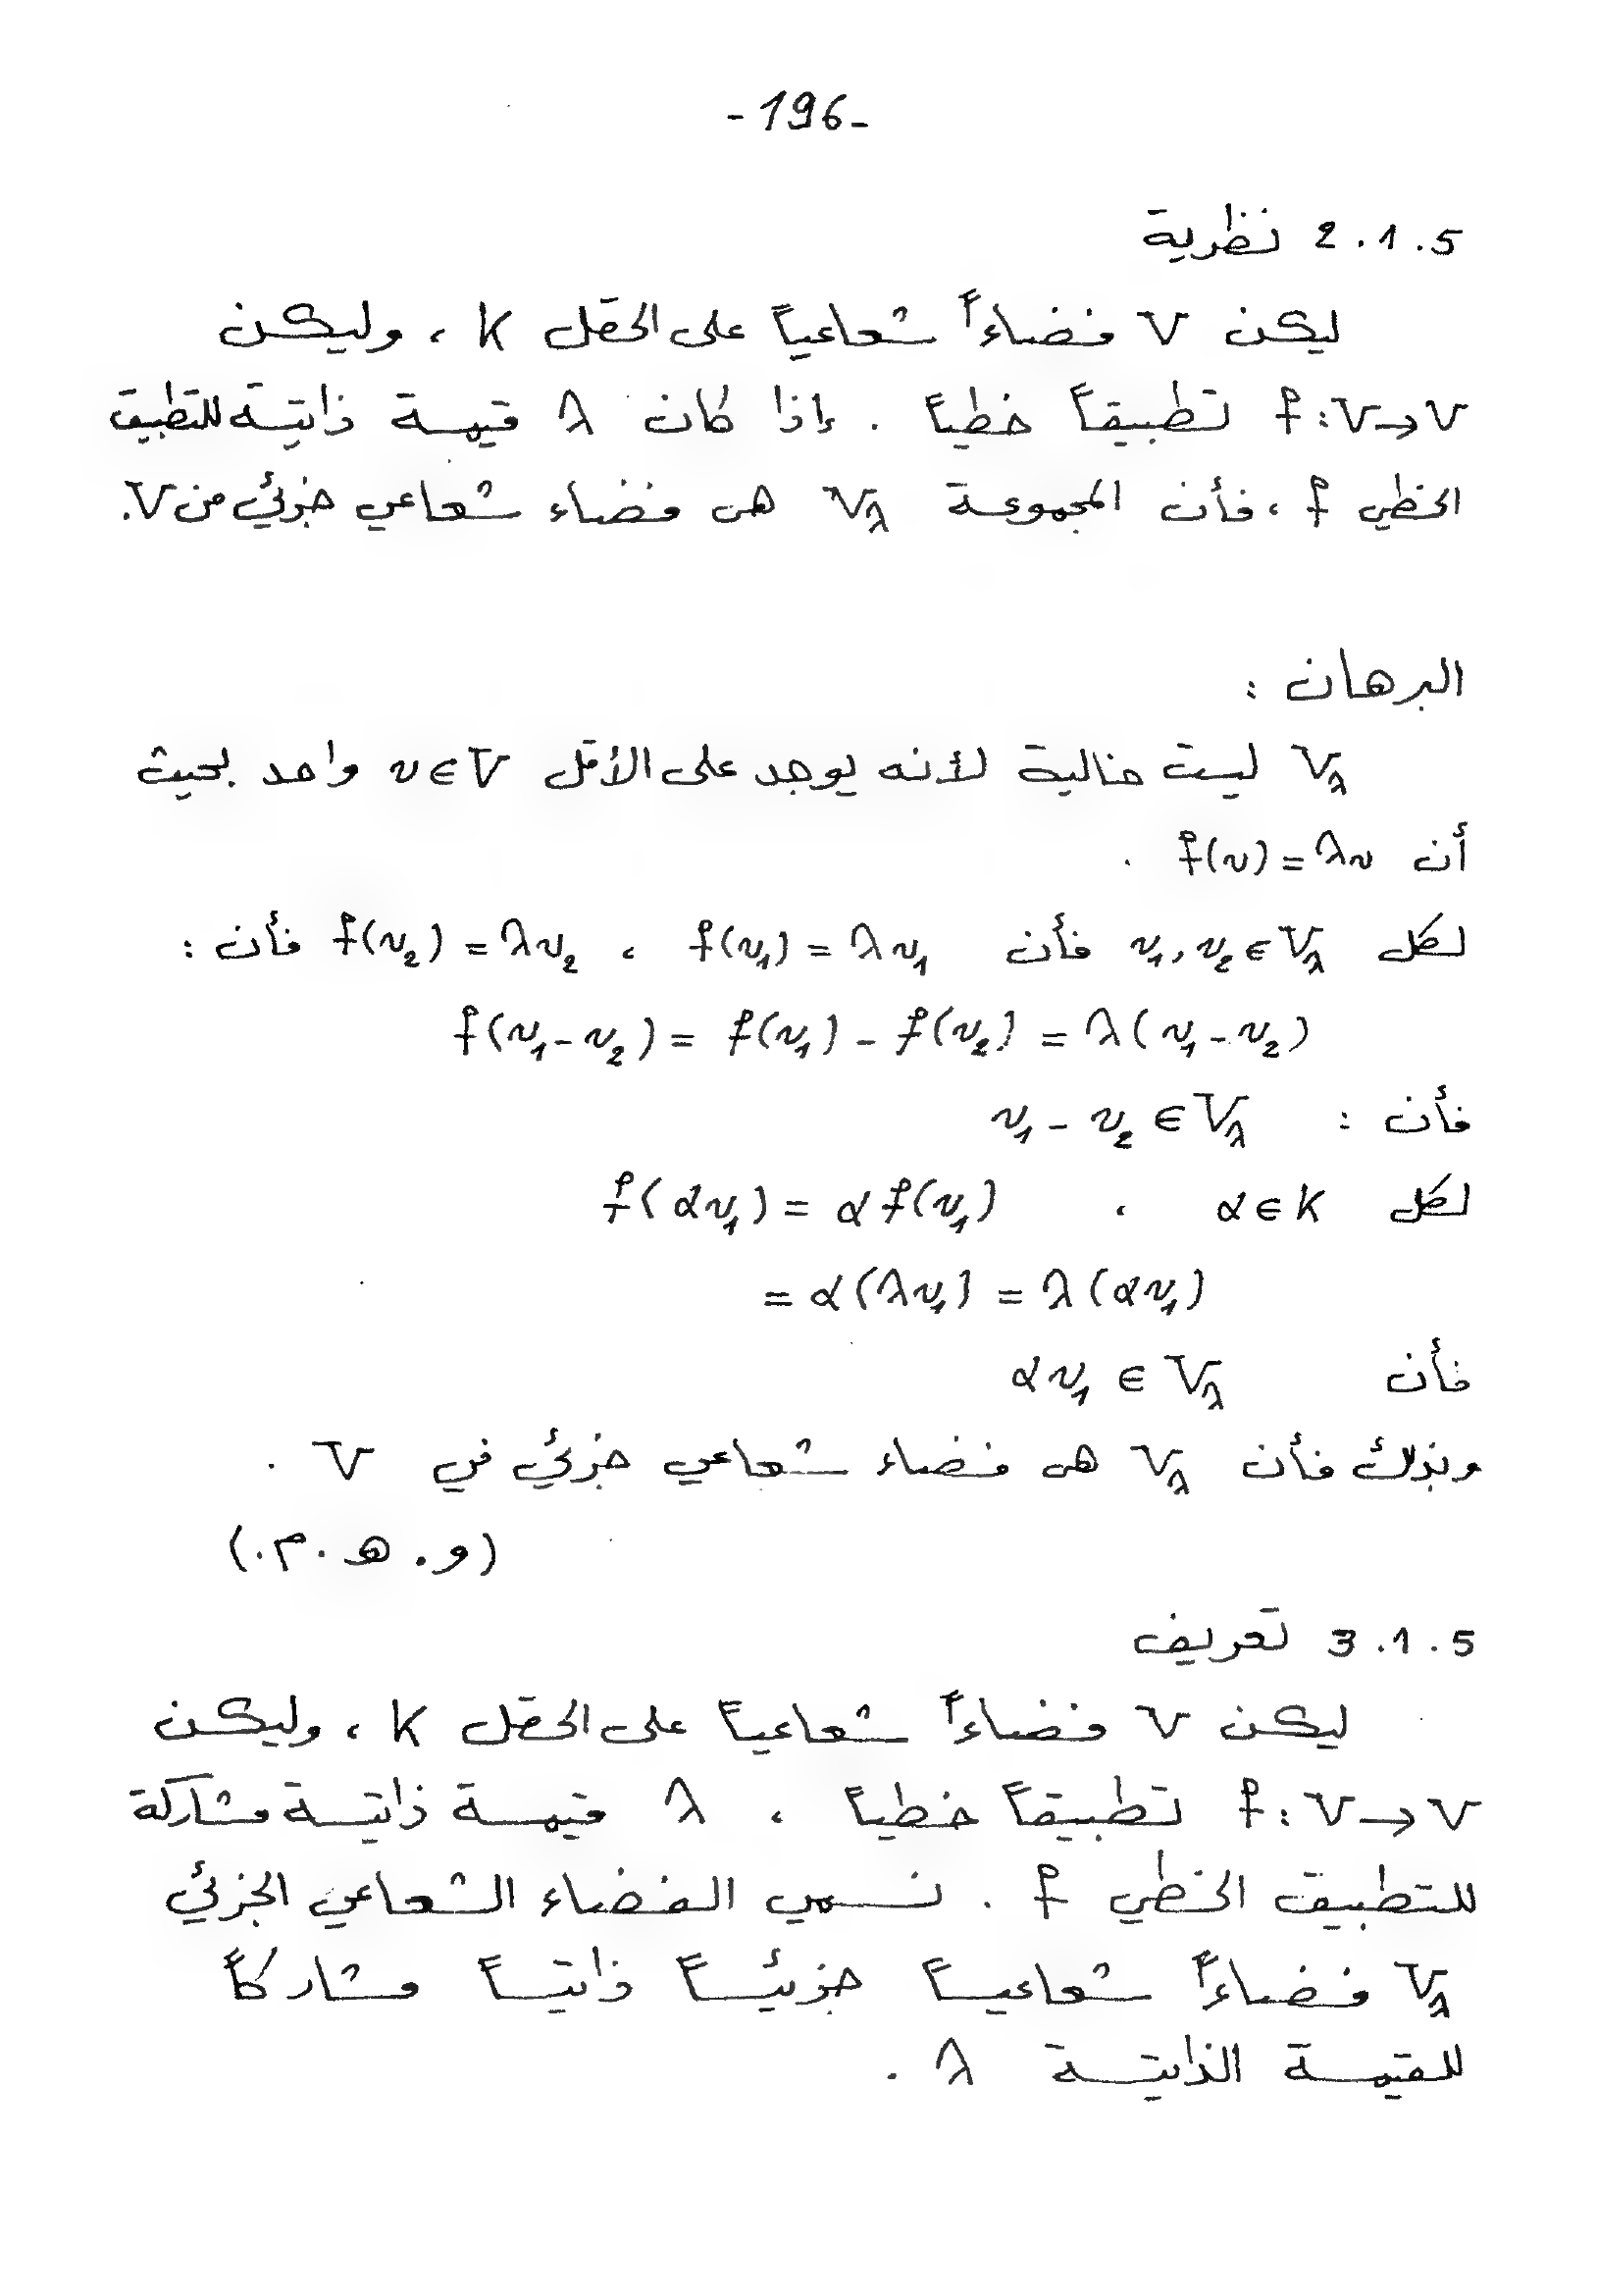 -196-
2.1.5 نظرية
ليكن V فضاءاً شعاعياً على الحقل K ، وليكن
f:V→V تطبيقاً خطياً . إذا كان λ قيمة ذاتية للتطبيق
الخطي f ، فأن المجموعة V_λ هي فضاء شعاعي جزئي من V.
البرهان :
V_λ ليست خالية لأنه يوجد على الأقل v∈V واحد بحيث
أن f(v)=λv .
لكل v₁,v₂∈V_λ فأن f(v₁)=λv₁ ، f(v₂)=λv₂ فأن :
f(v₁-v₂)= f(v₁)-f(v₂)=λ(v₁-v₂)
فأن : v₁-v₂∈V_λ
لكل α∈K ، f(αv₁)=αf(v₁)
=α(λv₁)=λ(αv₁)
فأن αv₁∈V_λ
وبذلك فأن V_λ هي فضاء شعاعي جزئي في V .
(و. ه. م.)
3.1.5 تعريف
ليكن V فضاءاً شعاعياً على الحقل K ، وليكن
f:V→V تطبيقاً خطياً ، λ قيمة ذاتية مشاركة
للتطبيق الخطي f . نسمي الفضاء الشعاعي الجزئي
V_λ فضاءاً شعاعياً جزئياً ذاتياً مشاركاً
للقيمة الذاتية λ .